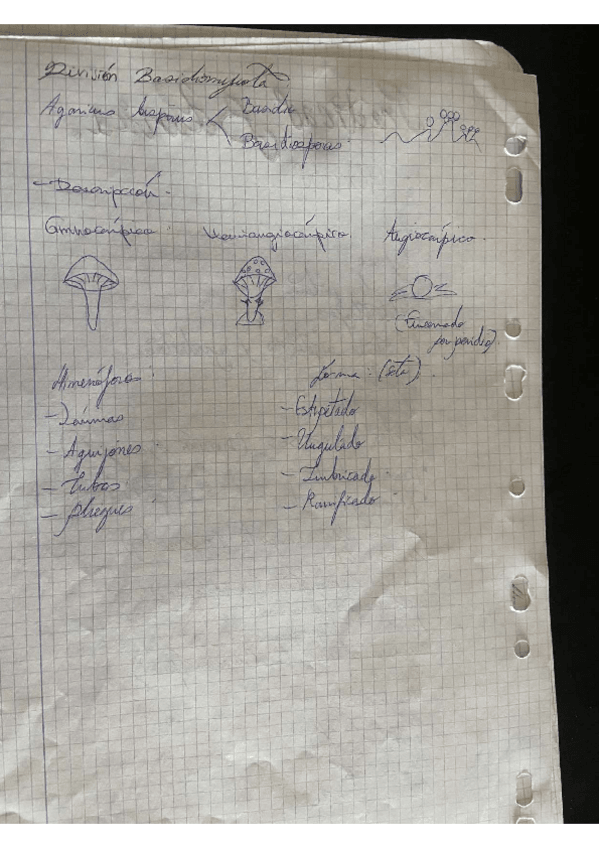 División Basidiomycota
Agaricus bisporus < Basidio
Basidiosporas
- Descripción.
Gimnocárpico: Hemiangiocárpico. Angiocárpico.
(Encerrado
por peridio)
Himenóforo: Forma (seta).
- Láminas - Estipitado
- Aguijones - Ungulado
- Tubos - Imbricado
- Pliegues - Ramificado